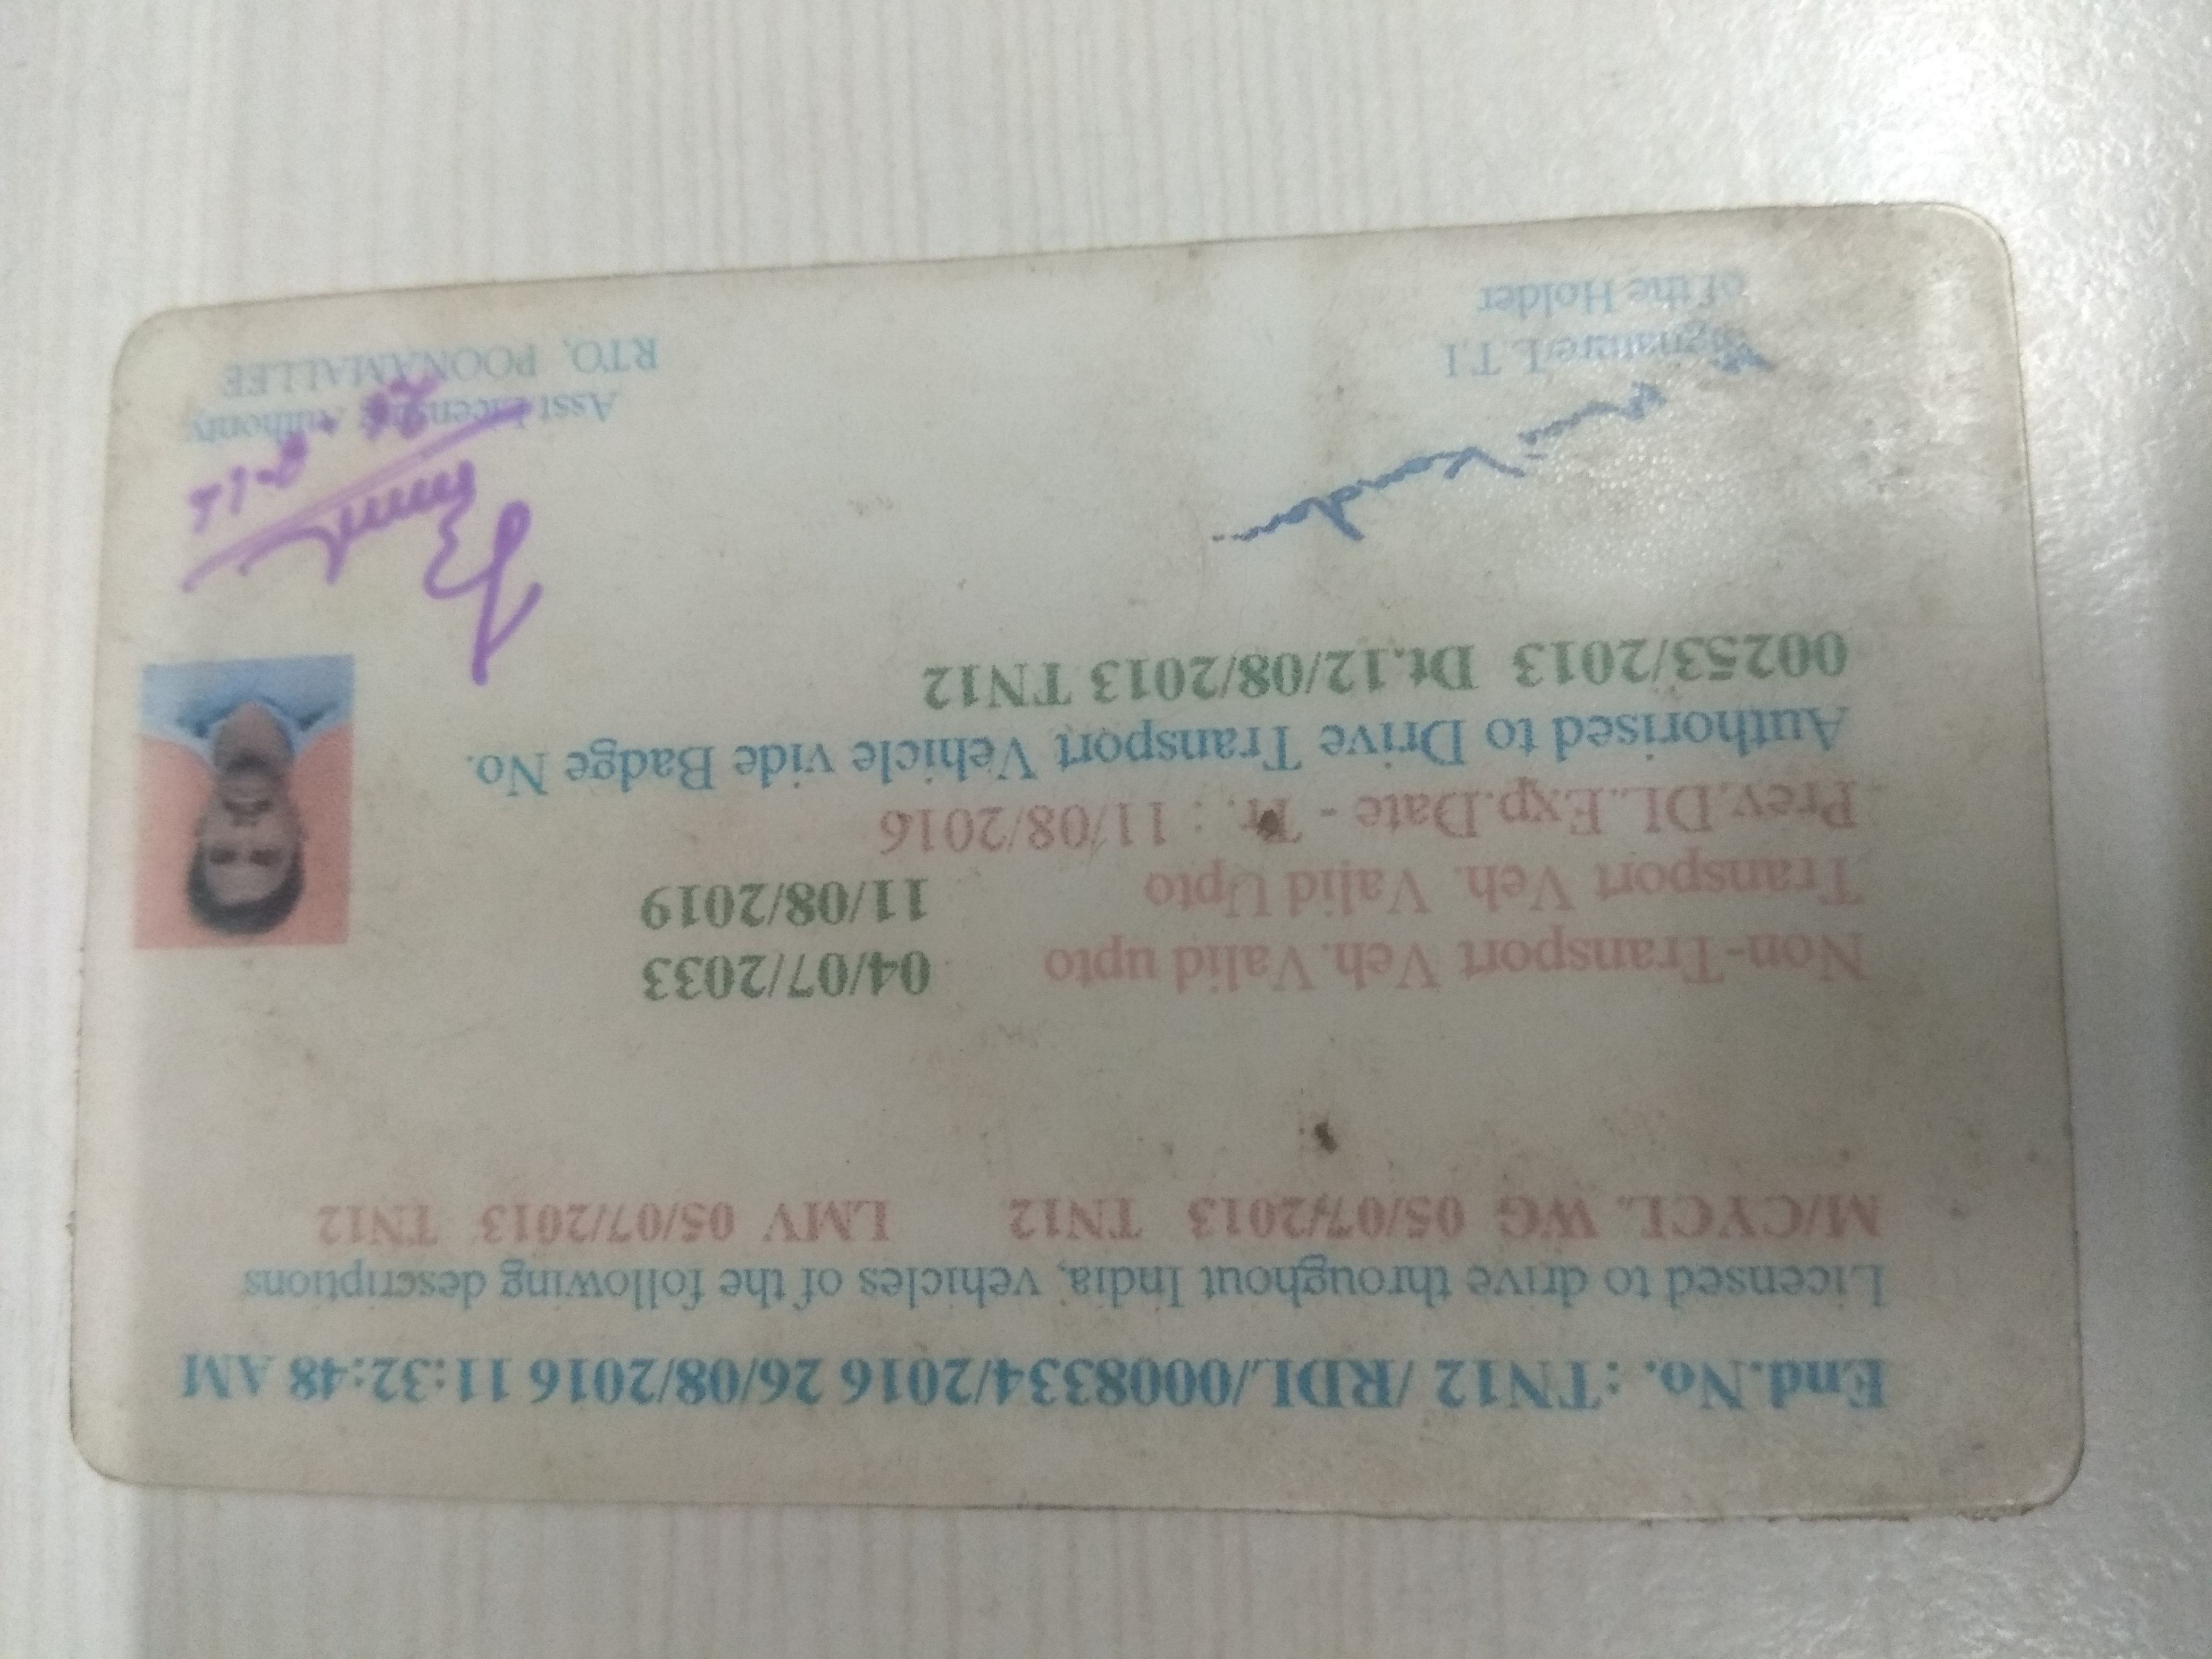 End.No. : TN12 / RDL/0008334/2016 26/08/2016 11:32:48 AM
Licensed to drive throughout India, vehicles of the following descriptions
M/CYCL. WG 05/07/2013 TN12 LMV 05/07/2013 TN12
Non-Transport Veh.Valid upto 04/07/2033
Transport Veh. Valid Upto 11/08/2019
Prev.DL.Exp.Date - Tr. : 11/08/2016
Authorised to Drive Transport Vehicle vide Badge No.
00253/2013 Dt.12/08/2013 TN12
Signature/L.T.I
of the Holder
Asst Licensing Authority
RTO, POONAMALLEE